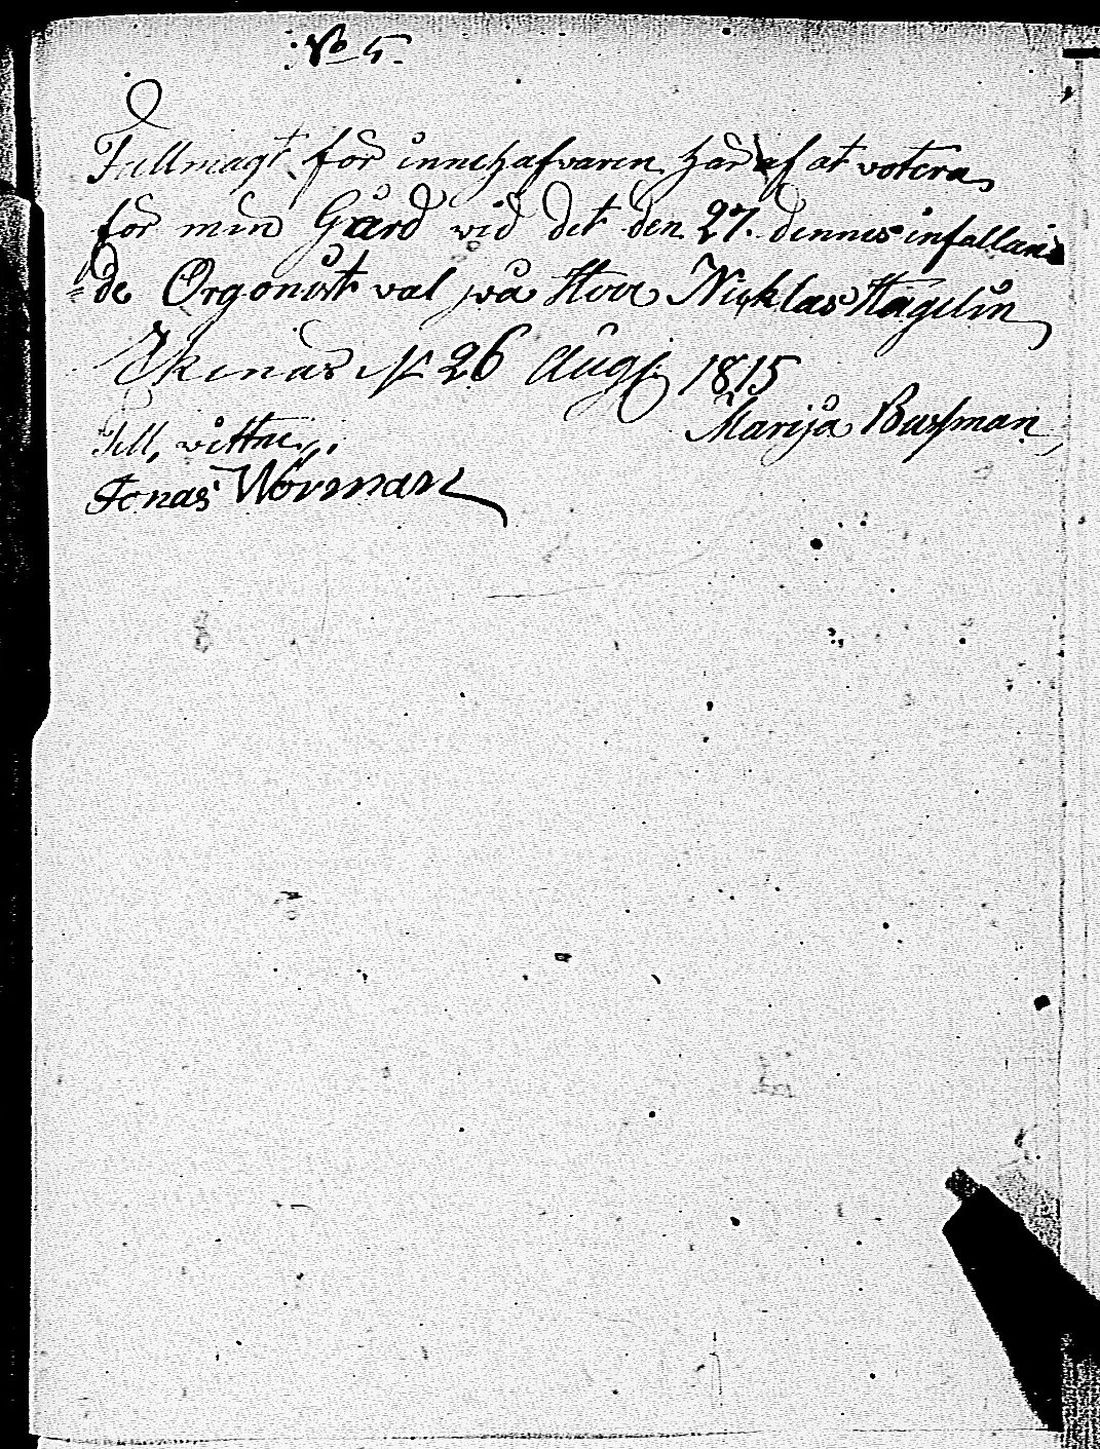 No 5.
Fullmagt för innehafvaren här af at votera
för min Gård vid det den 27. dennes infallan
de Orgonist val på Herr Nicklas Hagelin
Ekenäs d 26 Augt 1815
Marija Busman
Till, vittne,
Jonas Wörman